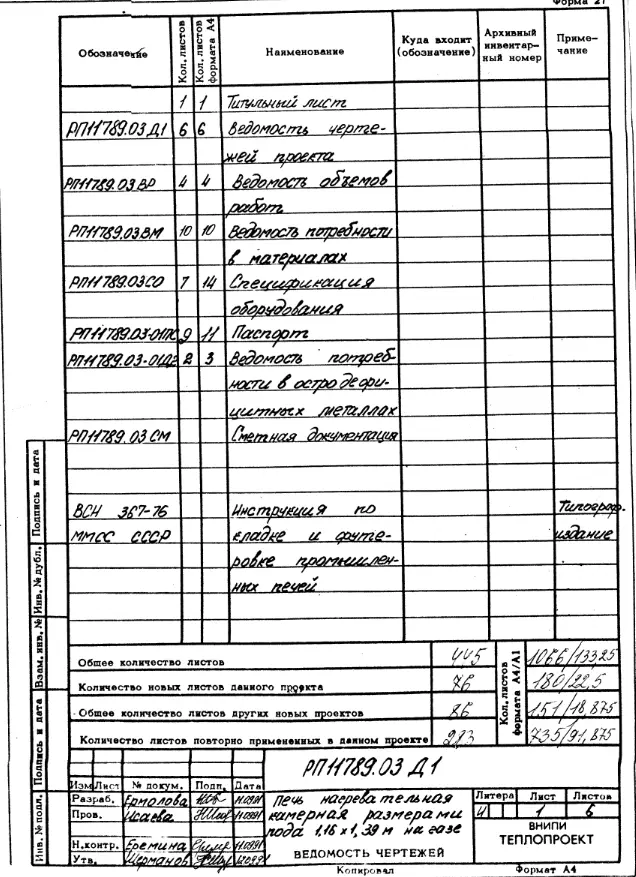 Форма 21
Обозначение Кол. листов Кол. листов формата А4 Наименование Куда входит (обозначение) Архивный инвентарный номер Примечание
1 1 Титульный лист
РП11789.03 Д1 6 6 Ведомость черте-
жей проекта
РП11789.03 ВР 4 4 Ведомость объемов
работ
РП11789.03 ВМ 10 10 Ведомость потребности
в материалах
РП11789.03 СО 7 14 Спецификация
оборудования
РП11789.03-01ПС 9 11 Паспорт
РП11789.03-01Д2 2 3 Ведомость потреб-
ности в остродефи-
цитных металлах
РП11789.03 СМ Сметная документация
ВСН 367-76 Инструкция по Типограф.
ММСС СССР кладке и футе- издание
ровке промышлен-
ных печей
Общее количество листов 445 1066/133,25
Количество новых листов данного проекта 76 180/22,5
Общее количество листов других новых проектов 86 151/18,875
Количество листов повторно примененных в данном проекте 283 735/91,875
Кол. листов формата А4/А1
Подпись и дата
Инв. № дубл.
Взам. инв. №
Подпись и дата
Инв. № подл.
РП11789.03 Д1
Изм Лист № докум. Подп. Дата
Разраб. Ермолова
Пров. Исаева
Н.контр. Еремина
Утв.
Печь нагревательная
камерная размерами
пода 1,16 х 1,39 м на газе
ВЕДОМОСТЬ ЧЕРТЕЖЕЙ
Литера Лист Листов
И 1 6
ВНИПИ
ТЕПЛОПРОЕКТ
Копировал Формат А4